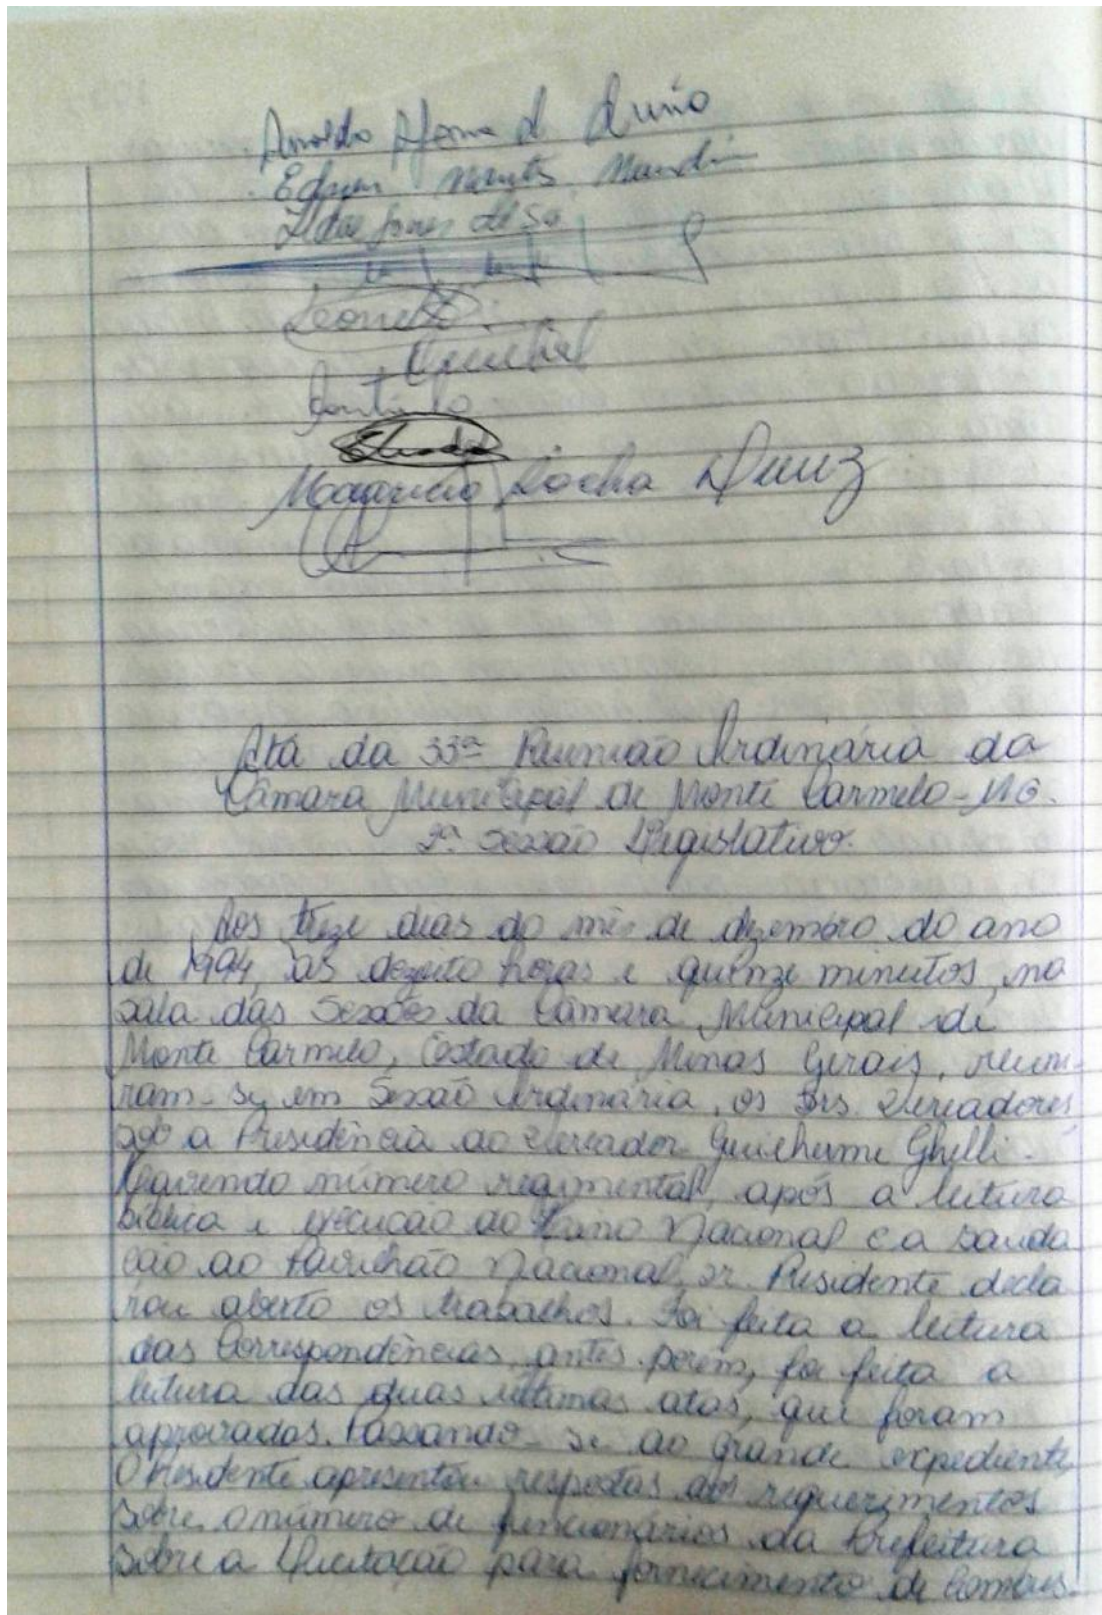 Edson Mendes
de Sá
Leonel
Rocha Diniz
Ata da 33ª Reunião Ordinária da
Câmara Municipal de Monte Carmelo - MG.
2ª Sessão Legislativa.
Aos treze dias do mês de dezembro do ano
de 1994, às dezoito horas e quinze minutos, na
sala das Sessões da Câmara Municipal de
Monte Carmelo, Estado de Minas Gerais, reuni-
ram-se em Sessão Ordinária, os Srs. Vereadores
sob a Presidência do Vereador Guilherme Ghelli.
Havendo número regimental, após a leitura
bíblica e execução do Hino Nacional e a sauda
ção ao Pavilhão Nacional, sr. Presidente decla
rou aberto os trabalhos. Foi feita a leitura
das Correspondências, antes porém, foi feita a
leitura das duas últimas atas, que foram
aprovadas. Passando-se ao grande expediente
O Presidente apresentou respostas aos requerimentos
sobre o número de funcionários da Prefeitura
sobre a Licitação para fornecimento de Combus-